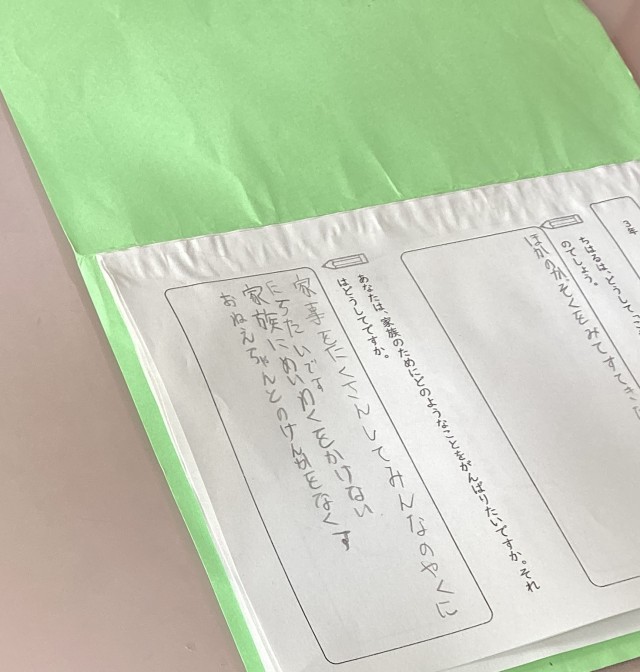 3年
ちはるは、どうして
のでしょう。
ほかのかぞくをみてすてき
あなたは、家族のためにどのようなことをがんばりたいですか。それ
はどうしてですか。
家事をたくさんしてみんなのやくに
たちたいです
家族にめいわくをかけない
おねえちゃんとのけんかをなくす